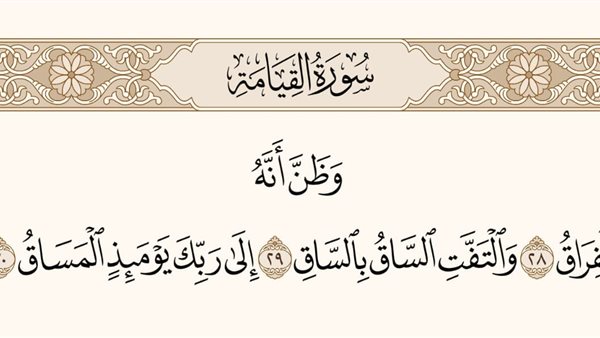 سُورَةُ القِيَامَةِ
وَظَنَّ أَنَّهُ
ٱلْفِرَاقُ ٢٨ وَٱلْتَفَّتِ ٱلسَّاقُ بِٱلسَّاقِ ٢٩ إِلَىٰ رَبِّكَ يَوْمَئِذٍ ٱلْمَسَاقُ ٣٠